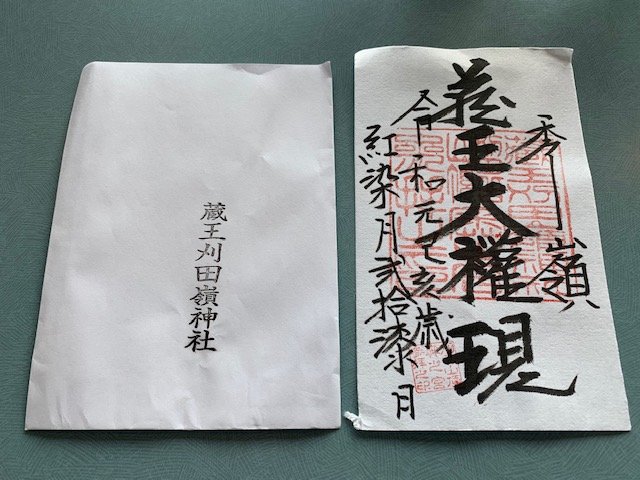 蔵王刈田嶺神社
秀嶺
蔵王大権現
令和元己亥歳
紅染月弐拾漆日